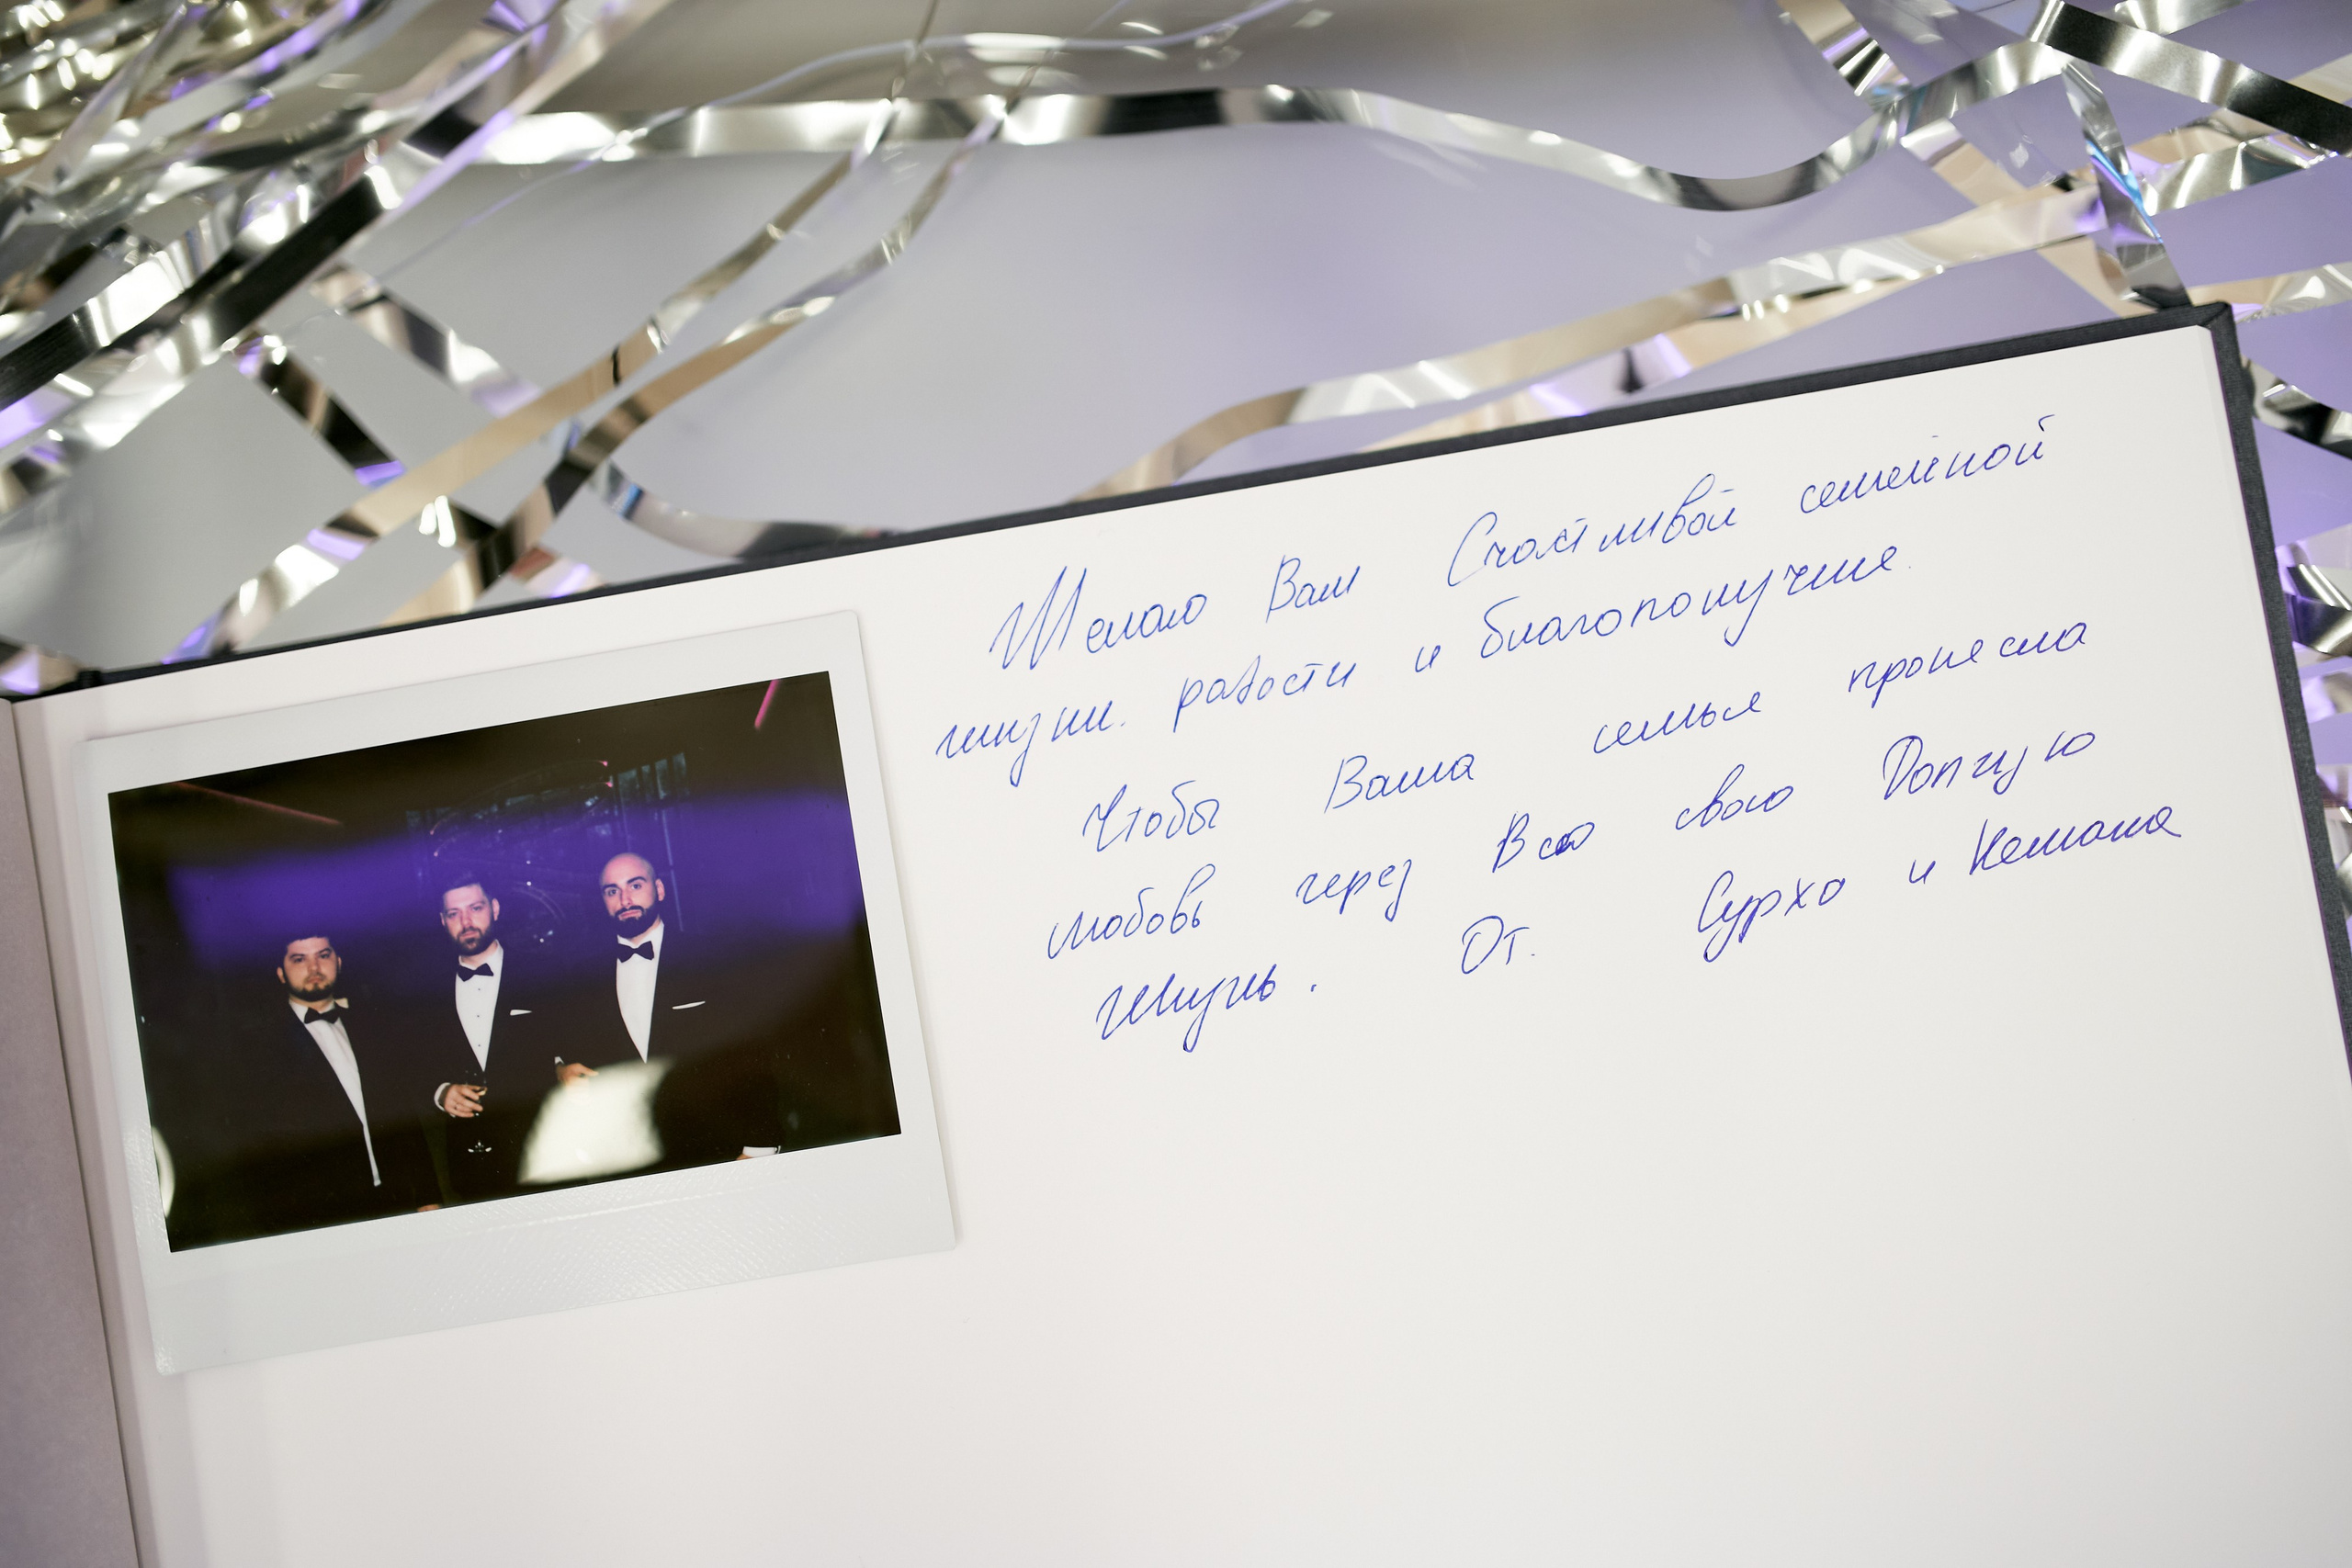 Желаю Вам Счастливой семейной
жизни. радости и благополучие.
Чтобы Ваша семья пронесла
любовь через Всю свою Долгую
жизнь. От. Сурхо и Кемана